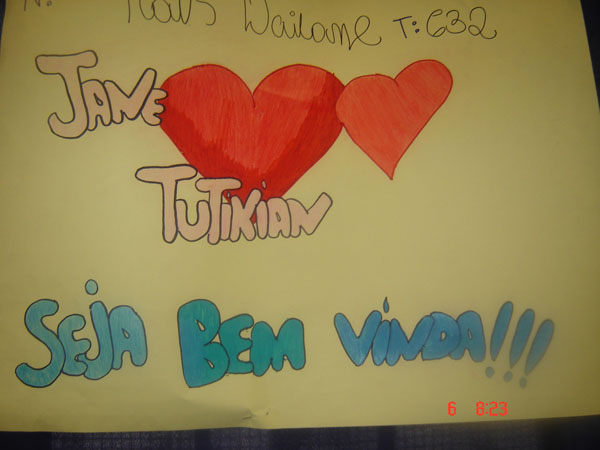 N:
Wailane T: 632
JANE
TUTIKIAN
SEJA BEM VINDA!!!
6 8:23